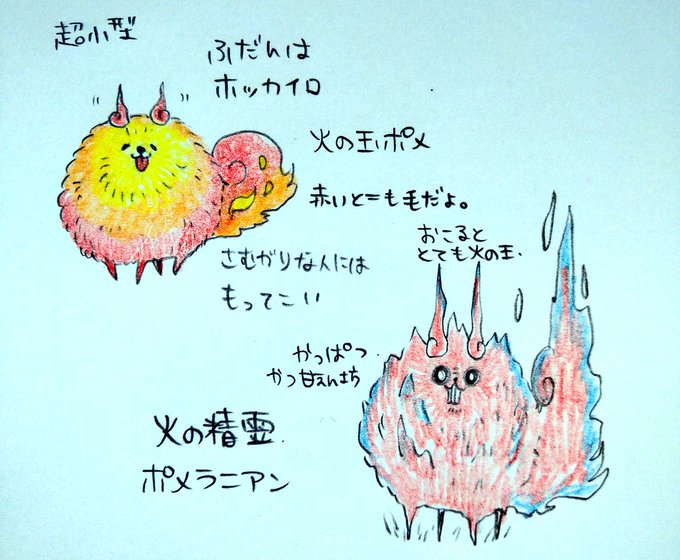 超小型
ふだんは
ホッカイロ
火の玉ポメ
赤いとこも毛だよ。
さむがりな人には
もってこい
おこると
とても火の玉.
かっぱつ
かつ甘えん坊
火の精霊
ポメラニアン